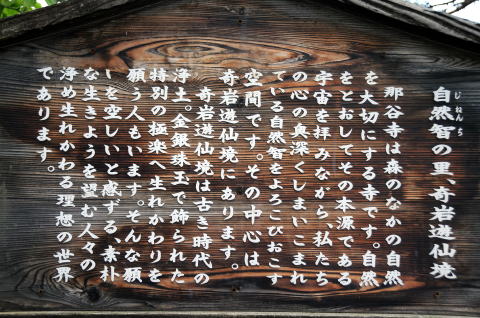 じねんち
自然智の里、奇岩遊仙境
那谷寺は森のなかの自然
を大切にする寺です。自然
をとおしてその本源である
宇宙を拝みながら、私たち
の心の奥深くしまいこまれ
ている自然智をよろこびおこす
空間です。その中心は
奇岩遊仙境にあります。
奇岩遊仙境は古き時代の
浄土。金銀珠玉で飾られた
特別の極楽へ生れかわりを
願う人もいます。そんな願
いを空しいと感ずる、素朴
な生きようを望む人々の
浄め生れかわる理想の世界
であります。